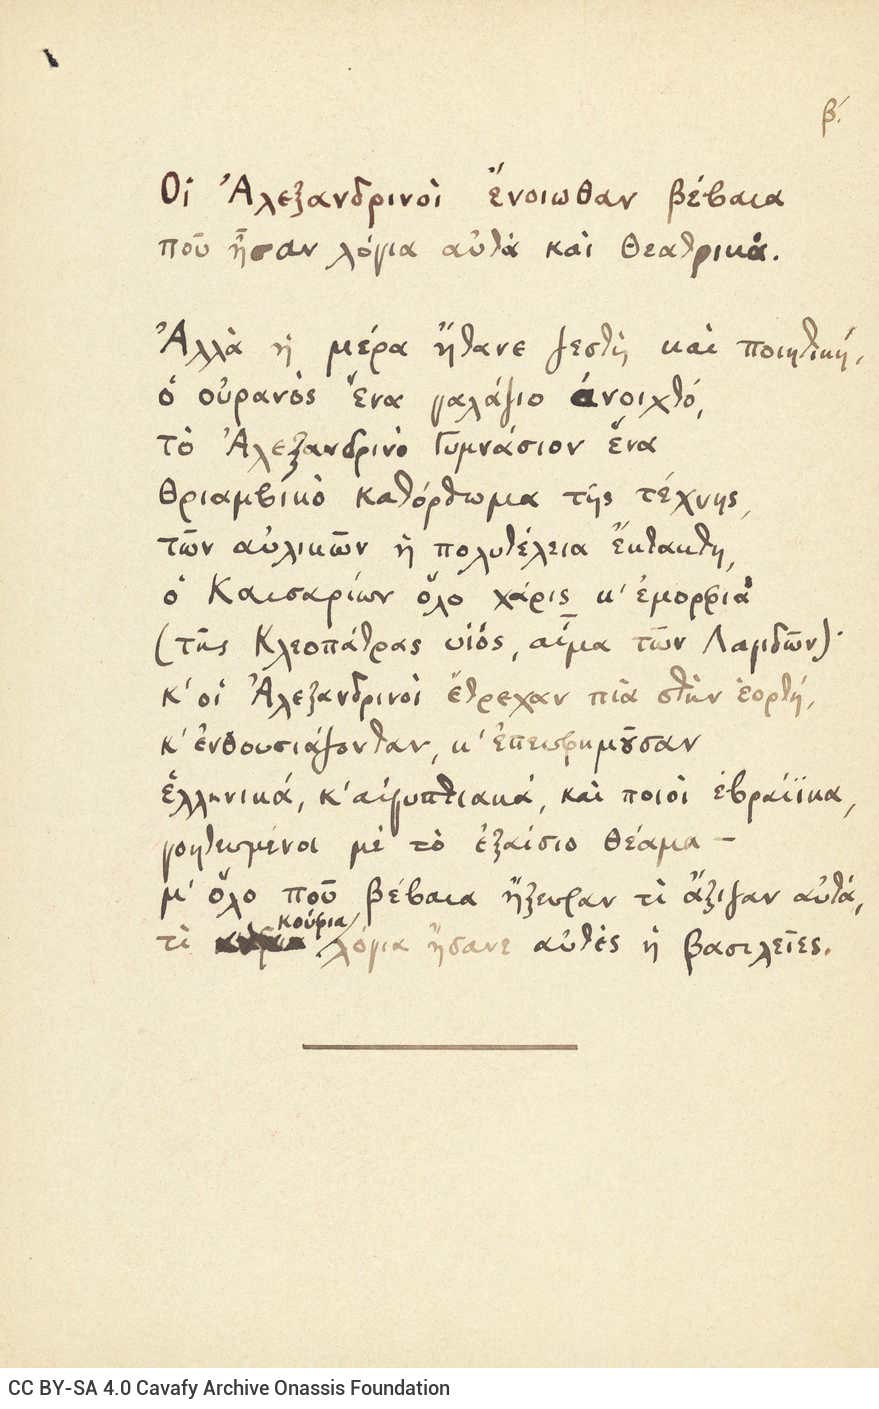 β΄.
Οἱ Ἀλεξανδρινοὶ ἔνοιωθαν βέβαια
ποῦ ἦσαν λόγια αὐτὰ καὶ θεατρικά.
Ἀλλὰ ἡ μέρα ἤτανε ζεστὴ καὶ ποιητική,
ὁ οὐρανὸς ἕνα γαλάζιο ἀνοιχτό,
τὸ Ἀλεξανδρινὸ Γυμνάσιον ἕνα
θριαμβικὸ κατόρθωμα τῆς τέχνης,
τῶν αὐλικῶν ἡ πολυτέλεια ἔκτακτη,
ὁ Καισαρίων ὅλο χάρις κ' ἐμορφιὰ
(τῆς Κλεοπάτρας υἱός, αἷμα τῶν Λαγιδῶν)·
κ' οἱ Ἀλεξανδρινοὶ ἔτρεχαν πιὰ στὴν ἑορτή,
κ' ἐνθουσιάζονταν, κ' ἐπευφημοῦσαν
ἑλληνικά, κ' αἰγυπτιακά, καὶ ποιοὶ ἑβραίϊκα,
γοητευμένοι μὲ τὸ ἐξαίσιο θέαμα —
μ' ὅλο ποῦ βέβαια ἤξευραν τὶ ἄξιζαν αὐτά,
τὶ κούφια λόγια ἤσανε αὐτὲς ἡ βασιλεῖες.
CC BY-SA 4.0 Cavafy Archive Onassis Foundation